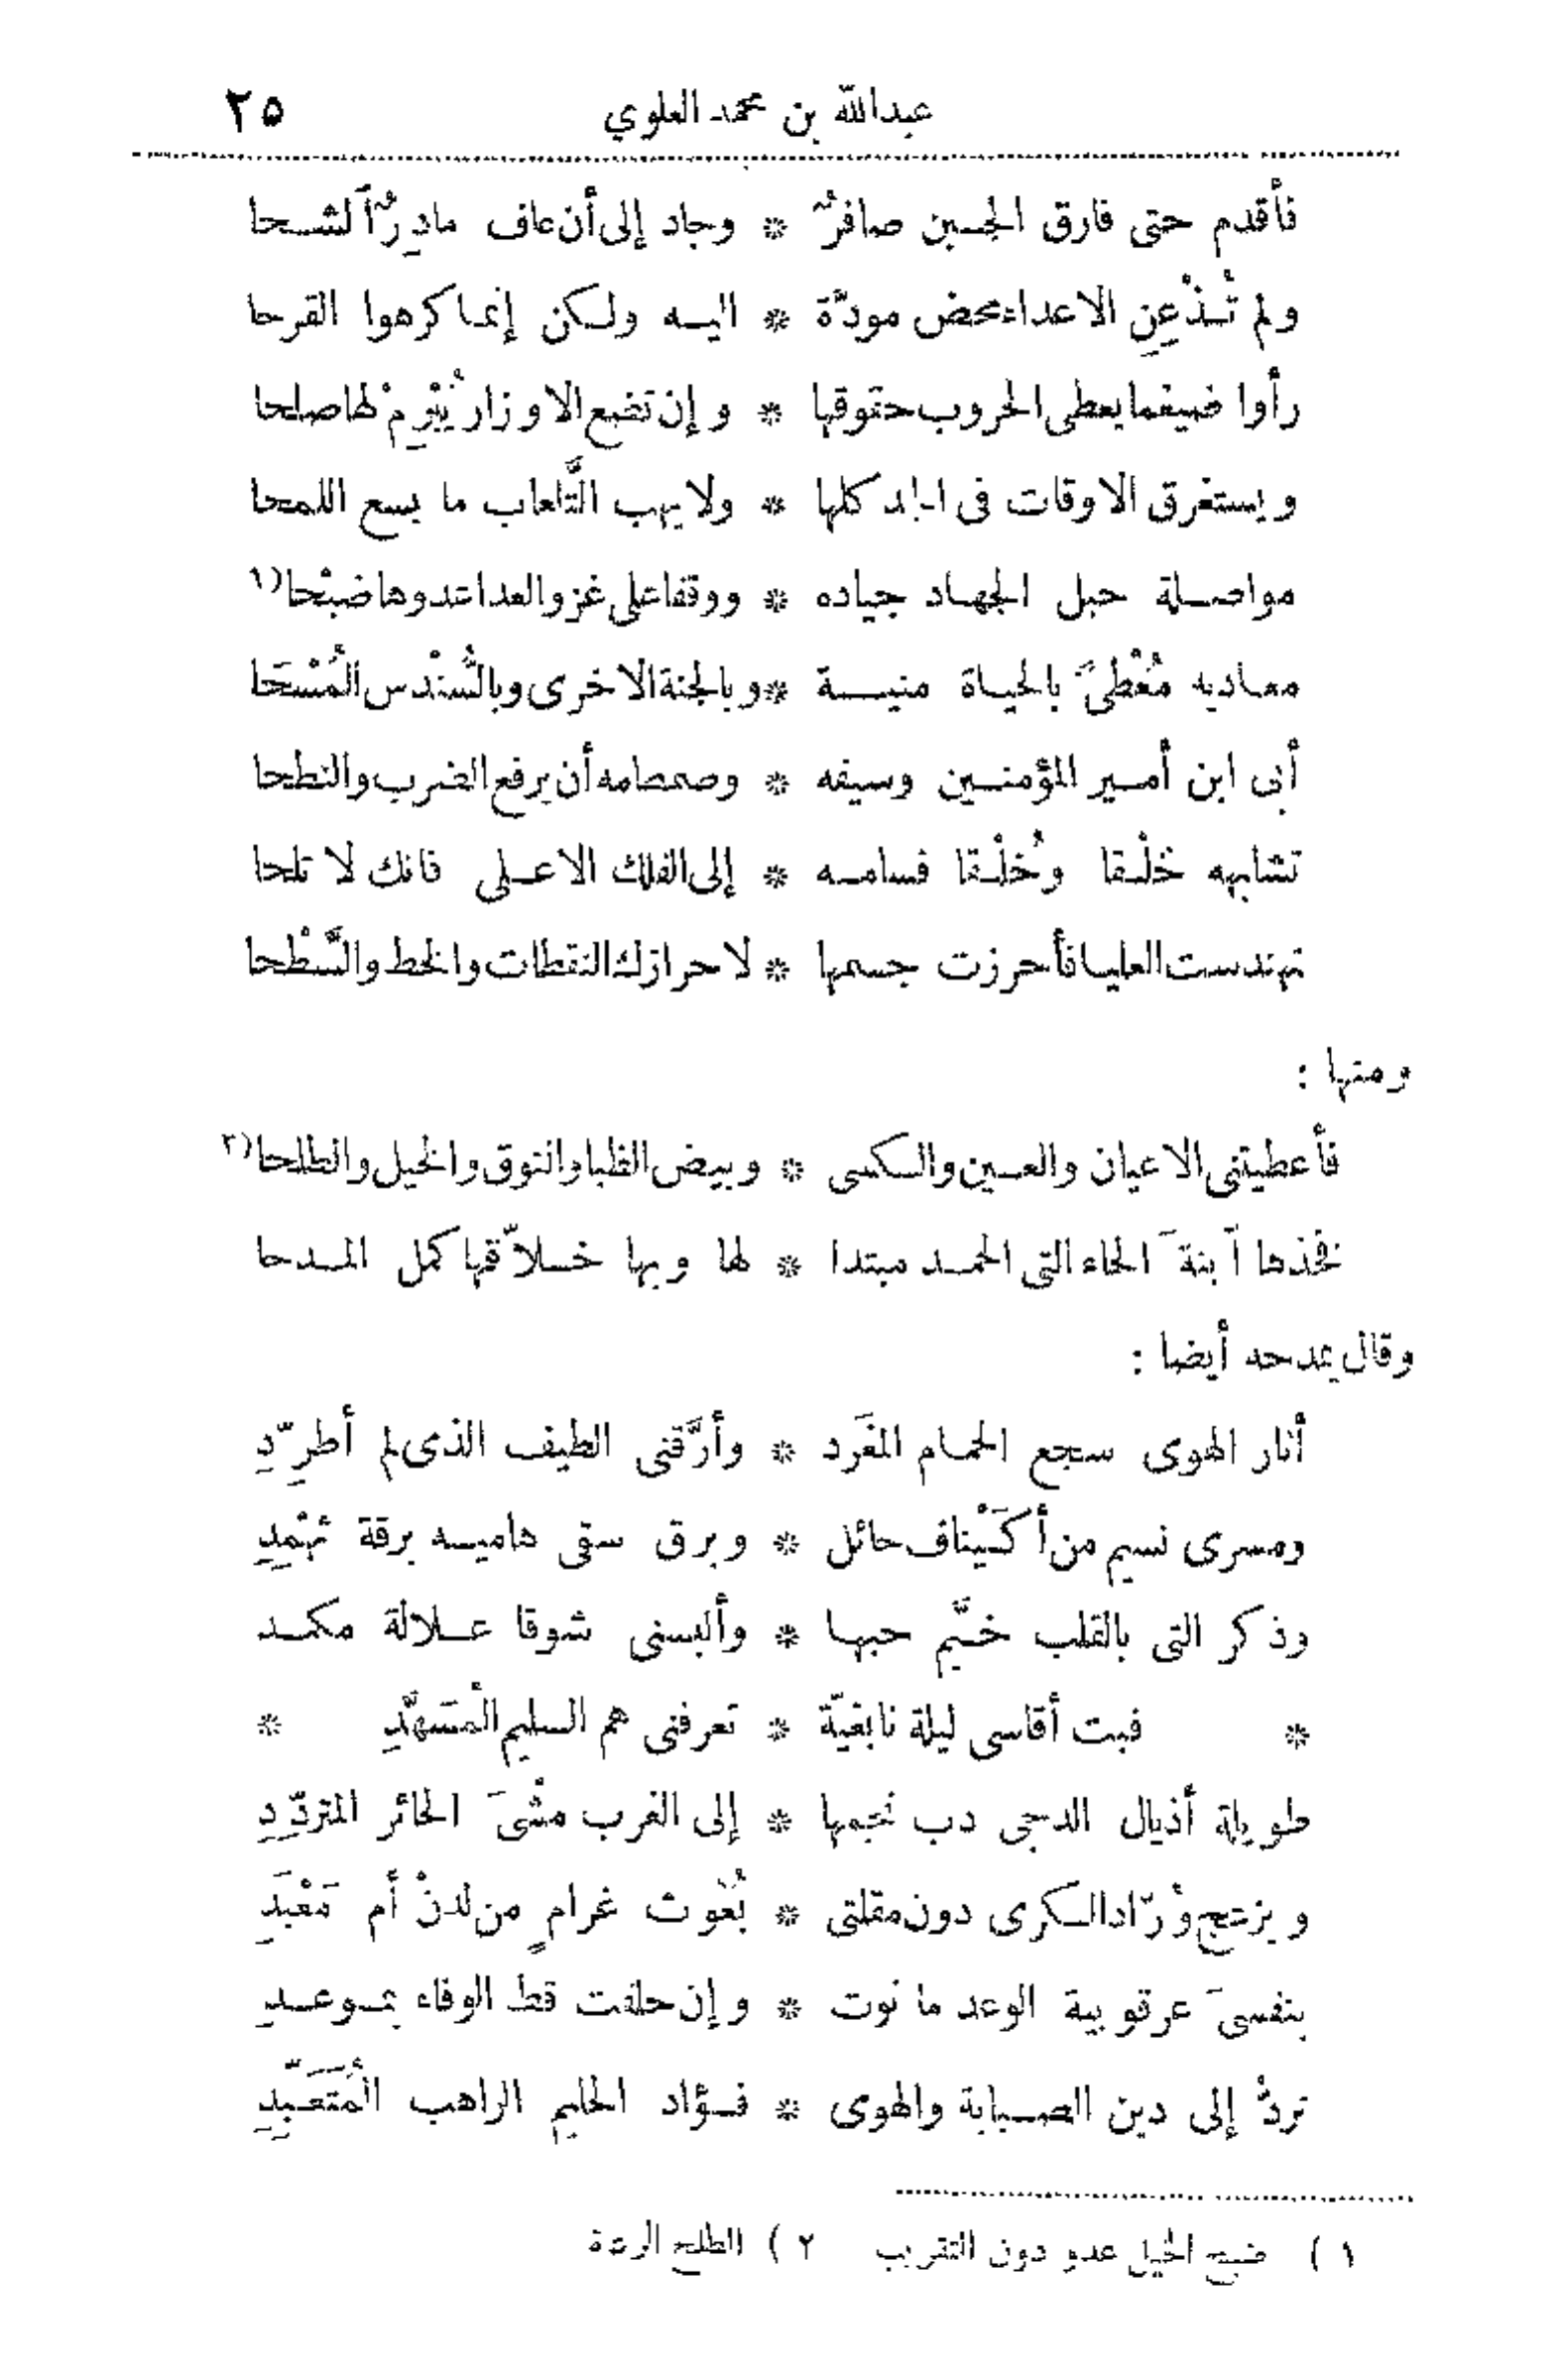 عبدالله بن محمد العلوي ٢٥
فأقدم حتى فارق الجبن صافرٌ * وجاد إلى أن عاف مادِرٌ آلشحا
ولم تُذْعِنِ الاعداء محض مودّة * اليه ولكن إنما كرهوا القرحا
رأوا ضيغما يعطى الحروب حقوقها * وإن تضع الاوزار يُبْرِمْ لها صلحا
ويستغرق الاوقات فى الجد كلها * ولا يهب التَّلعاب ما يسع اللمحا
مواصلة حبل الجهاد جياده * ووقفا على غزو العدا عدوها ضبْحا (١
معاديه مُعْطىً بالحياة منية * وبالجنة الاخرى وبالسُّنْدس الْمُسْحَا
أبى ابن أمير المؤمنين وسيفه * وصمصامه أن يرفع الضرب والنطحا
تشابهه خلْقا وخُلْقا فسامه * إلى الفلك الاعلى فانك لا تلحا
تهندست العليا فأحرزت جسمها * لاحرازك النقطات والخط والسَّطْحا
ومنها :
فأعطيتنى الاعيان والعين والكسى * وبيض الظبا والنوق والخيل والطلحا (٢
فخذها آبنةَ الحاء التى الحمد مبتدا * لها وبها خلاّقها كمل المدحا
وقال يمدحه أيضا :
أثار الهوى سجع الحمام المغَرد * وأرَّقنى الطيف الذى لم أطرِّدِ
ومسرى نسيم من أكَيْناف حائل * وبرق سقى هاميه برقة ثهْمدِ
وذكر التى بالقلب خيَّم حبها * وألبسنى شوقا علالة مكمد
* فبت أقاسى ليلة نابغيّة * تعرفنى هم السليم الْمسَهَّدِ *
طويلة أذيال الدجى دب نجمها * إلى الغرب مشْىَ الحائر المتردِّدِ
ويزعج وُرّاد الكرى دون مقلتى * بُعُوث غرامٍ من لدنْ أم مَعْبَدِ
بنفسىَ عرقوبية الوعد ما نوت * وإن حلفت قط الوفاء بموعدِ
تردُّ إلى دين الصبابة والهوى * فؤاد الحليم الراهب الْمُتَعَبِّدِ
١ ) ضبح الخيل عدو دون التقريب ٢ ) الطلح الرعة